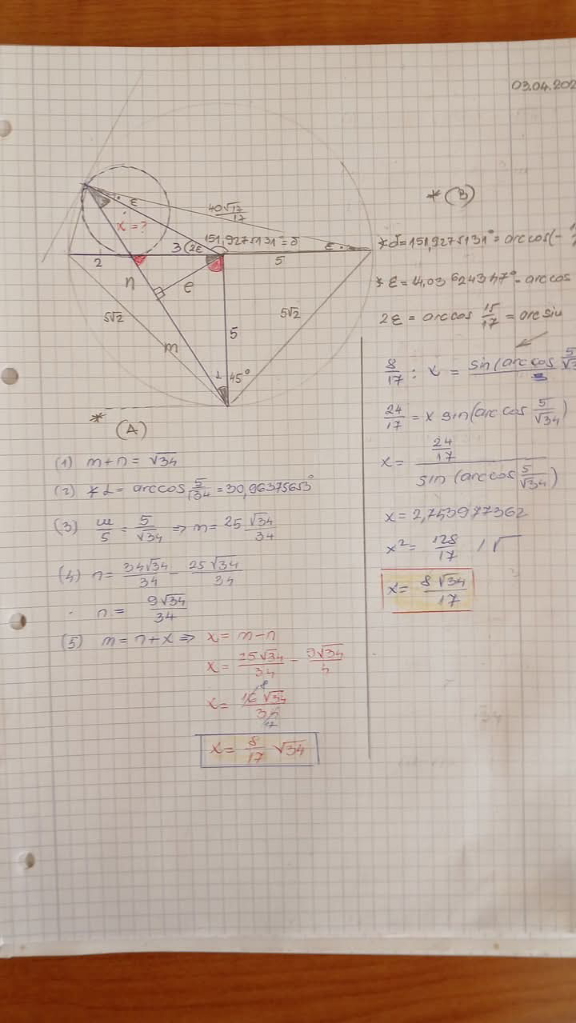 03.04.202
40√17/17
ε
x=?
3
2ε
151,9275131°=δ
ε
2
5
n
e
5√2
5
5√2
m
α
45°
* (A)
(1) m+n = √34
(2) ∢α = arccos 5/√34 = 30,96375653°
(3) m/5 = 5/√34 ⇒ m = 25√34/34
(4) n = 34√34/34 - 25√34/34
n = 9√34/34
(5) m = n+x ⇒ x = m-n
x = 25√34/34 - 9√34/
x = 16√34/34
x = 8/17 √34
* (B)
∢δ=151,9275131°=arccos(-
∢ε=14,03624347°=arccos
2ε = arccos 15/17 = arcsin
8/17 : x = sin(arccos 5/√3
24/17 = x sin(arc cos 5/√34)
x = 24/17 / sin(arccos 5/√34)
x = 2,743977362
x² = 128/17 /√
x = 8√34/17